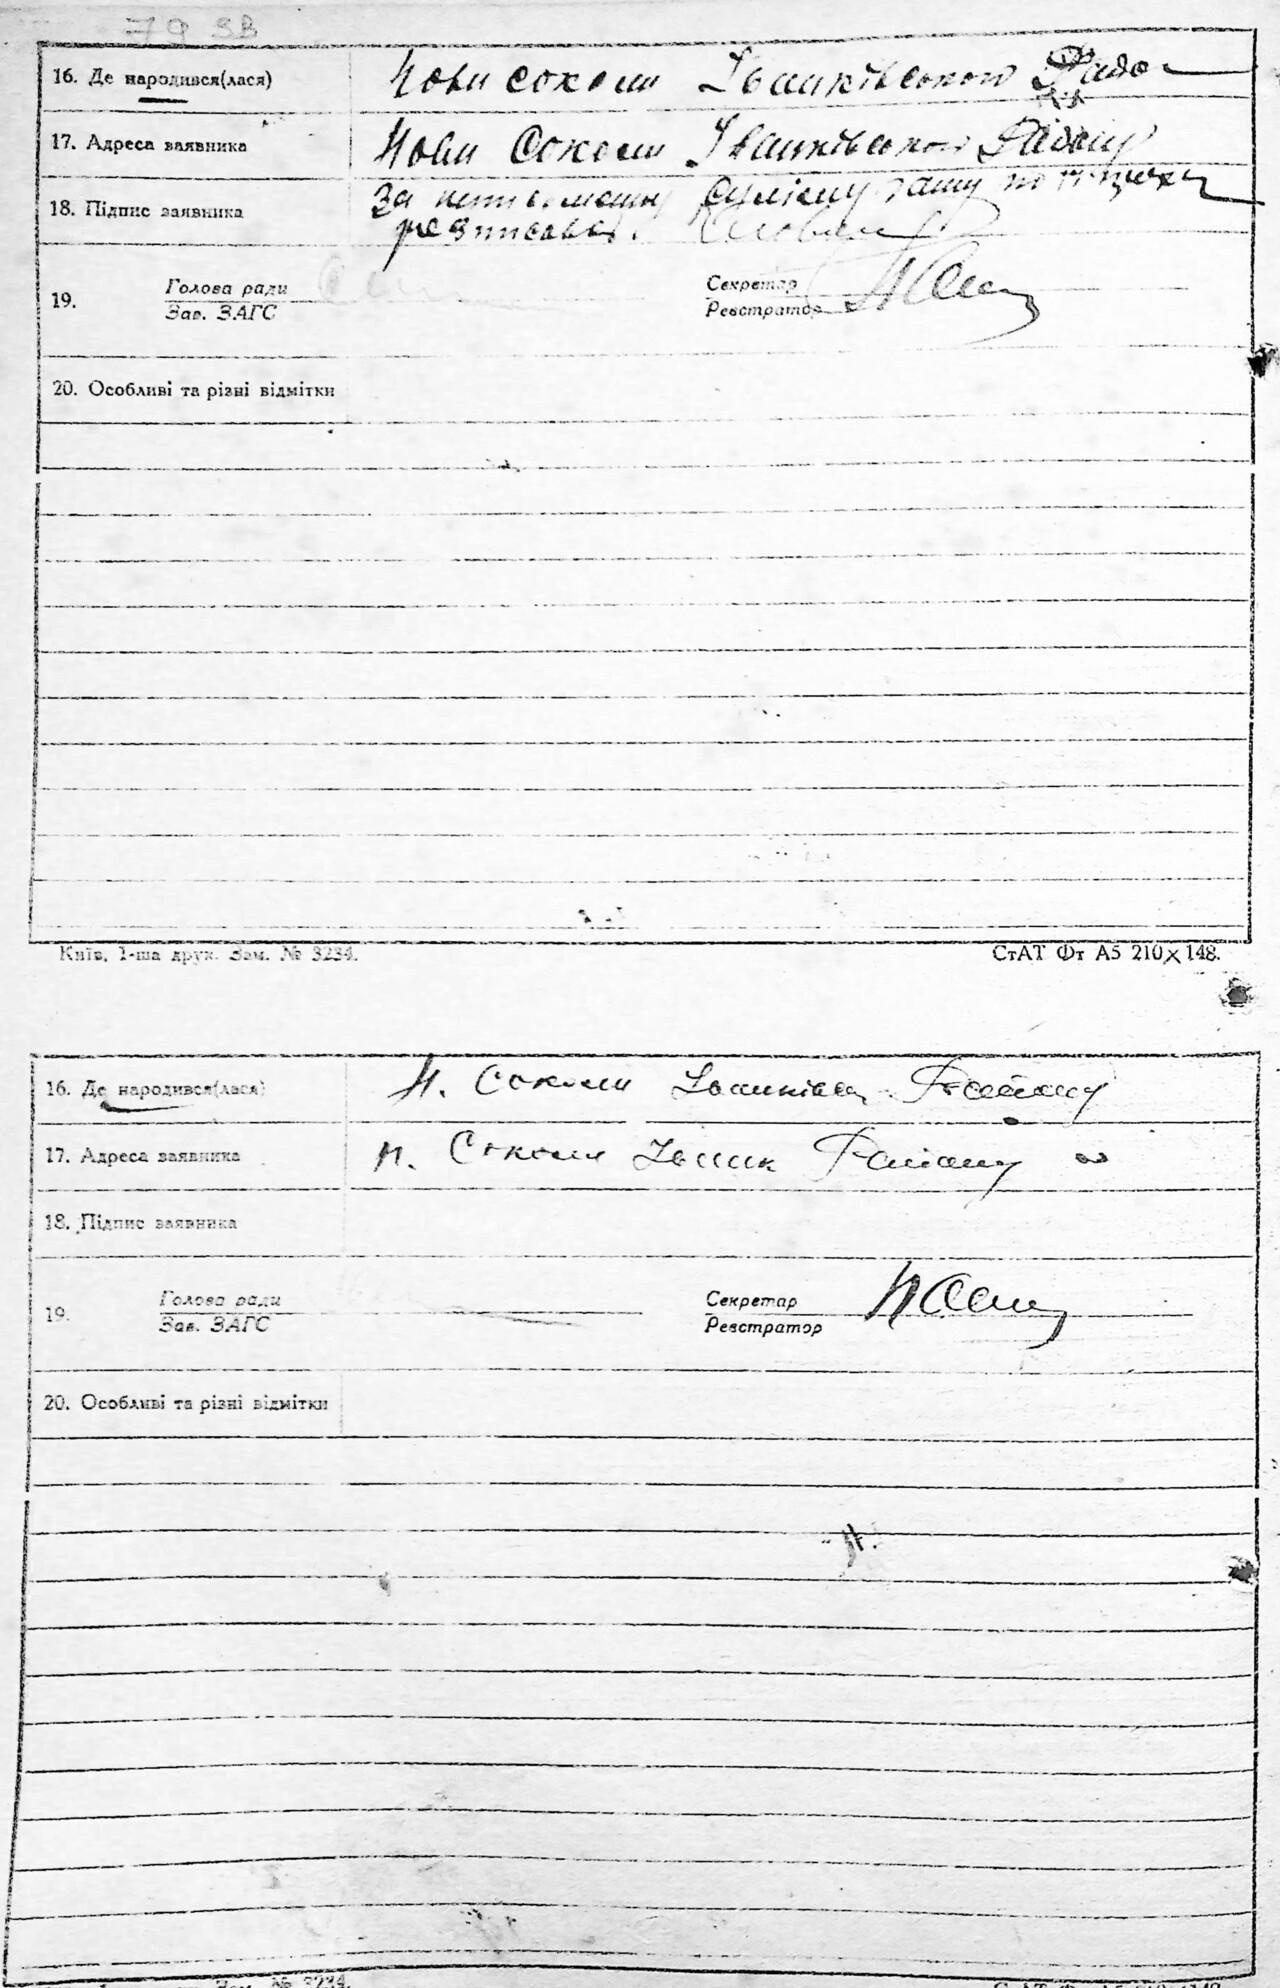 79 зв
16. Де народився(лася) Нови соколи Іванківського Району
17. Адреса заявника Нови Соколи Іванківського Району
18. Підпис заявника За
розписався.
19. Голова ради
Зав. ЗАГС
Секретар
Реєстратор
20. Особливі та різні відмітки
Київ, 1-ша друк. Зам. № 3234.
СтАТ Фт А5 210×148.
16. Де народився(лася) Н. Соколи Іванківськ Району
17. Адреса заявника Н. Соколи Іванк Району
18. Підпис заявника
19. Голова ради
Зав. ЗАГС
Секретар
Реєстратор
20. Особливі та різні відмітки
Зам. № 3234.